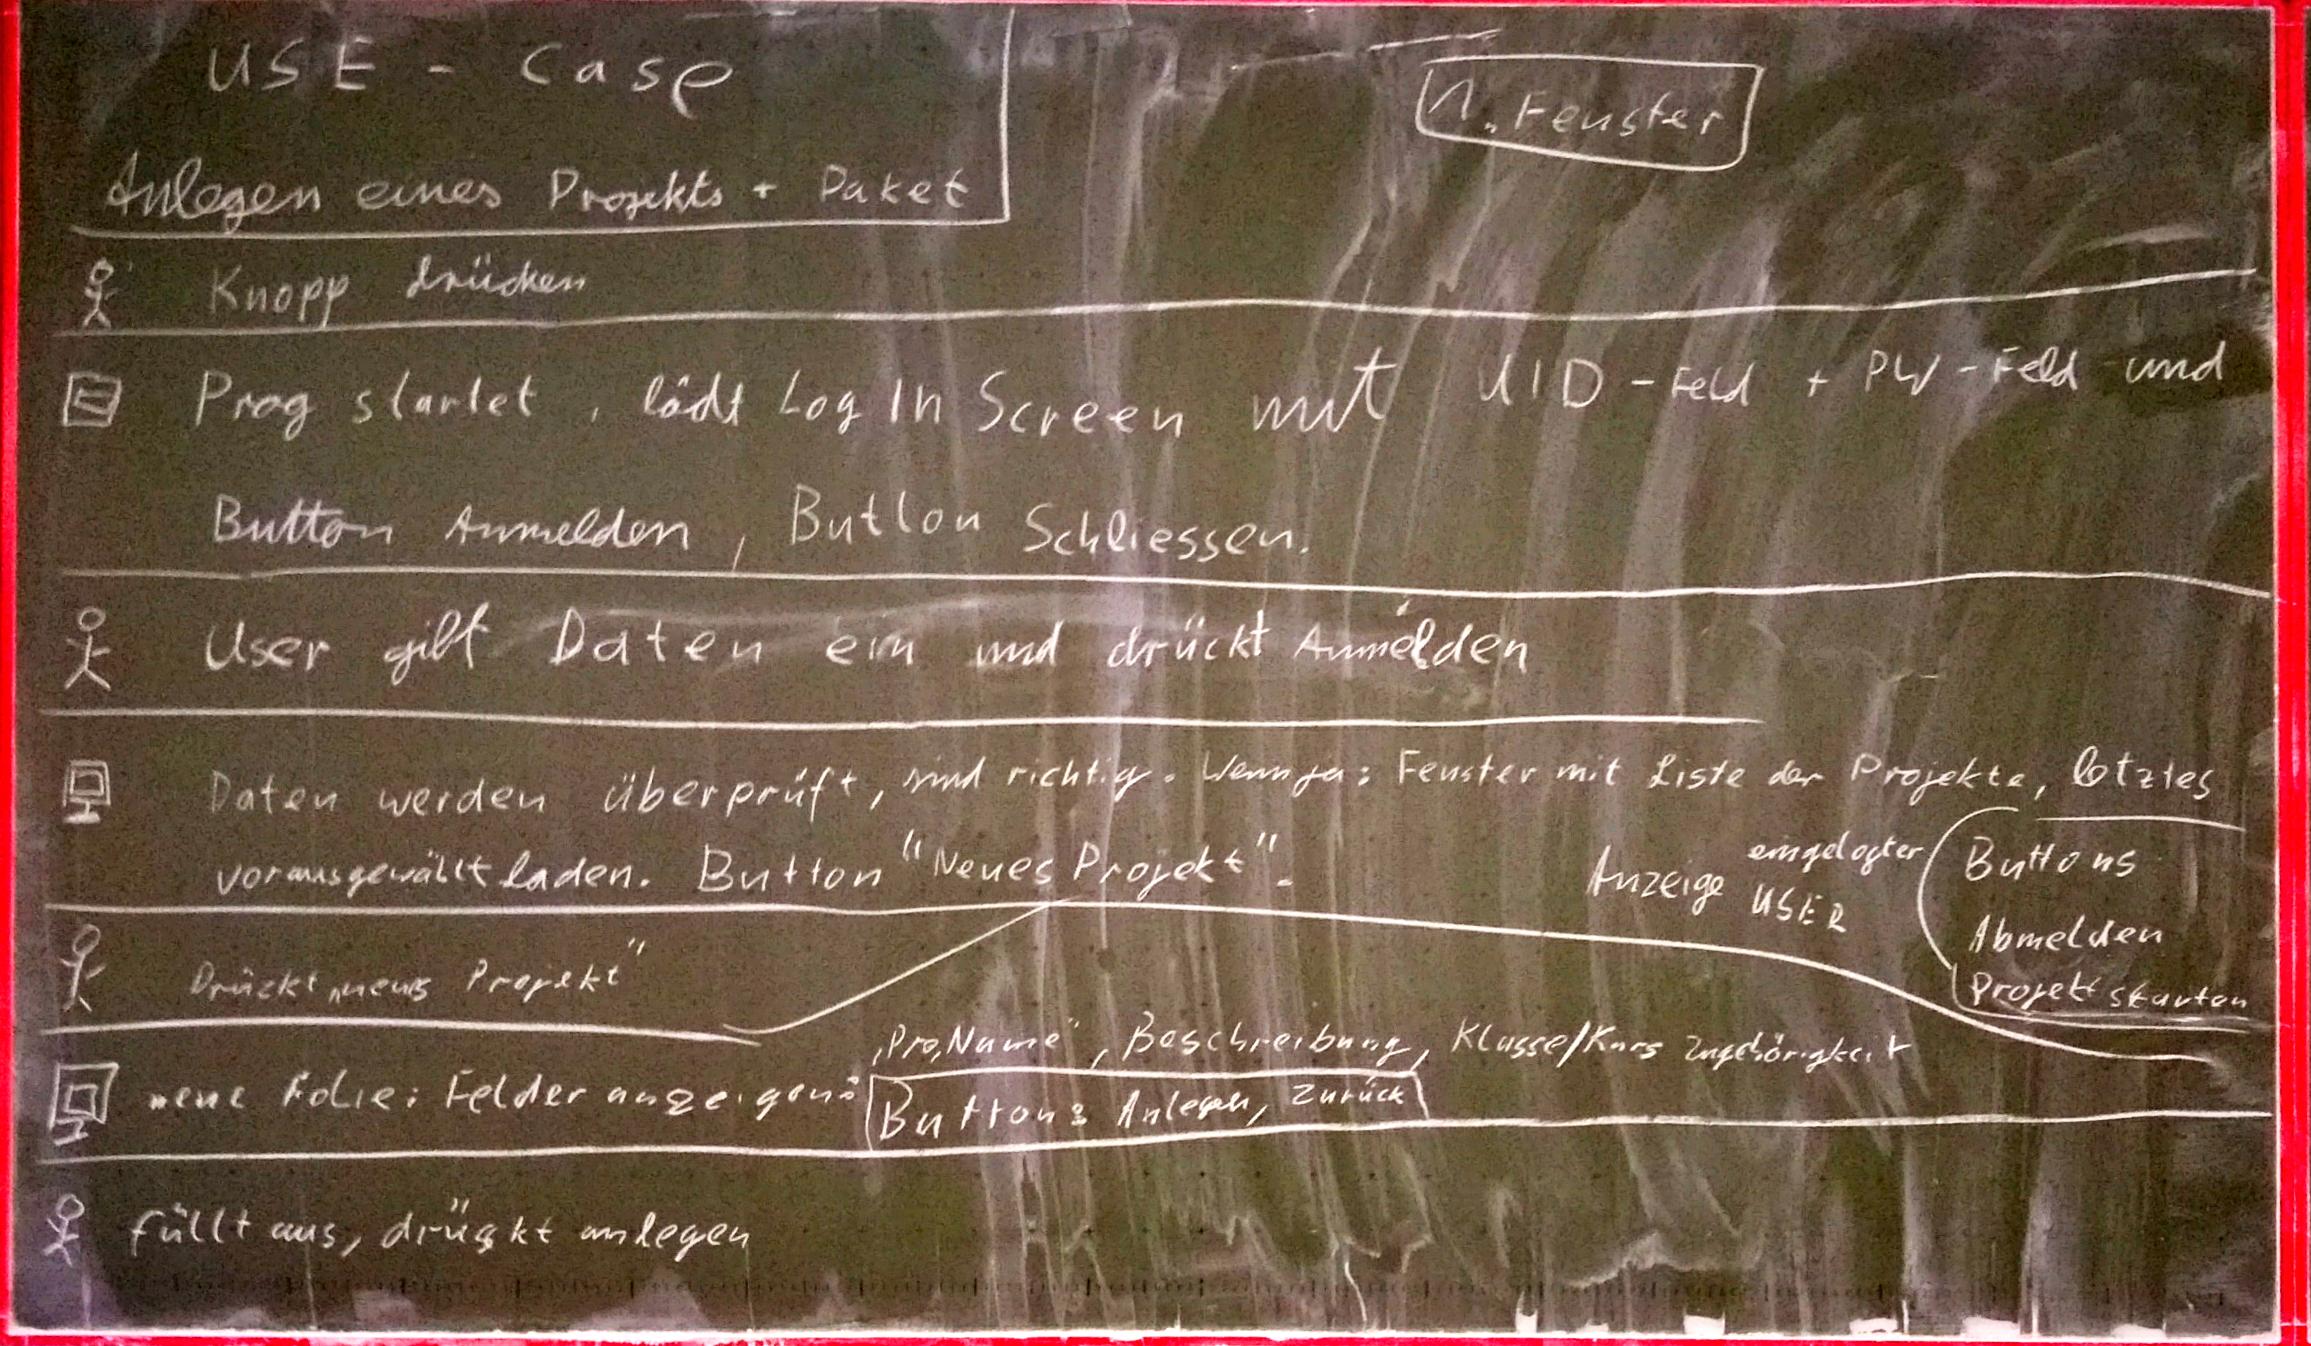 USE - Case
1. Fenster
Anlegen eines Projekts + Paket
Knopp drücken
Prog startet, lädt Log In Screen mit UID-Feld + PW-Feld und
Button Anmelden, Button Schliessen.
User gibt Daten ein und drückt Anmelden
Daten werden überprüft, sind richtig. Wenn ja: Fenster mit Liste der Projekte, letztes
vorausgewällt laden. Button "Neues Projekt".
Anzeige eingelogter USER
Buttons
Abmelden
Projekt starten
Drückt „neues Projekt"
neue Folie: Felder anzeigen: „Pro,Name", Beschreibung, Klasse/Kurs Zugehörigkeit
Button: Anlegen, Zurück
füllt aus, drückt anlegen